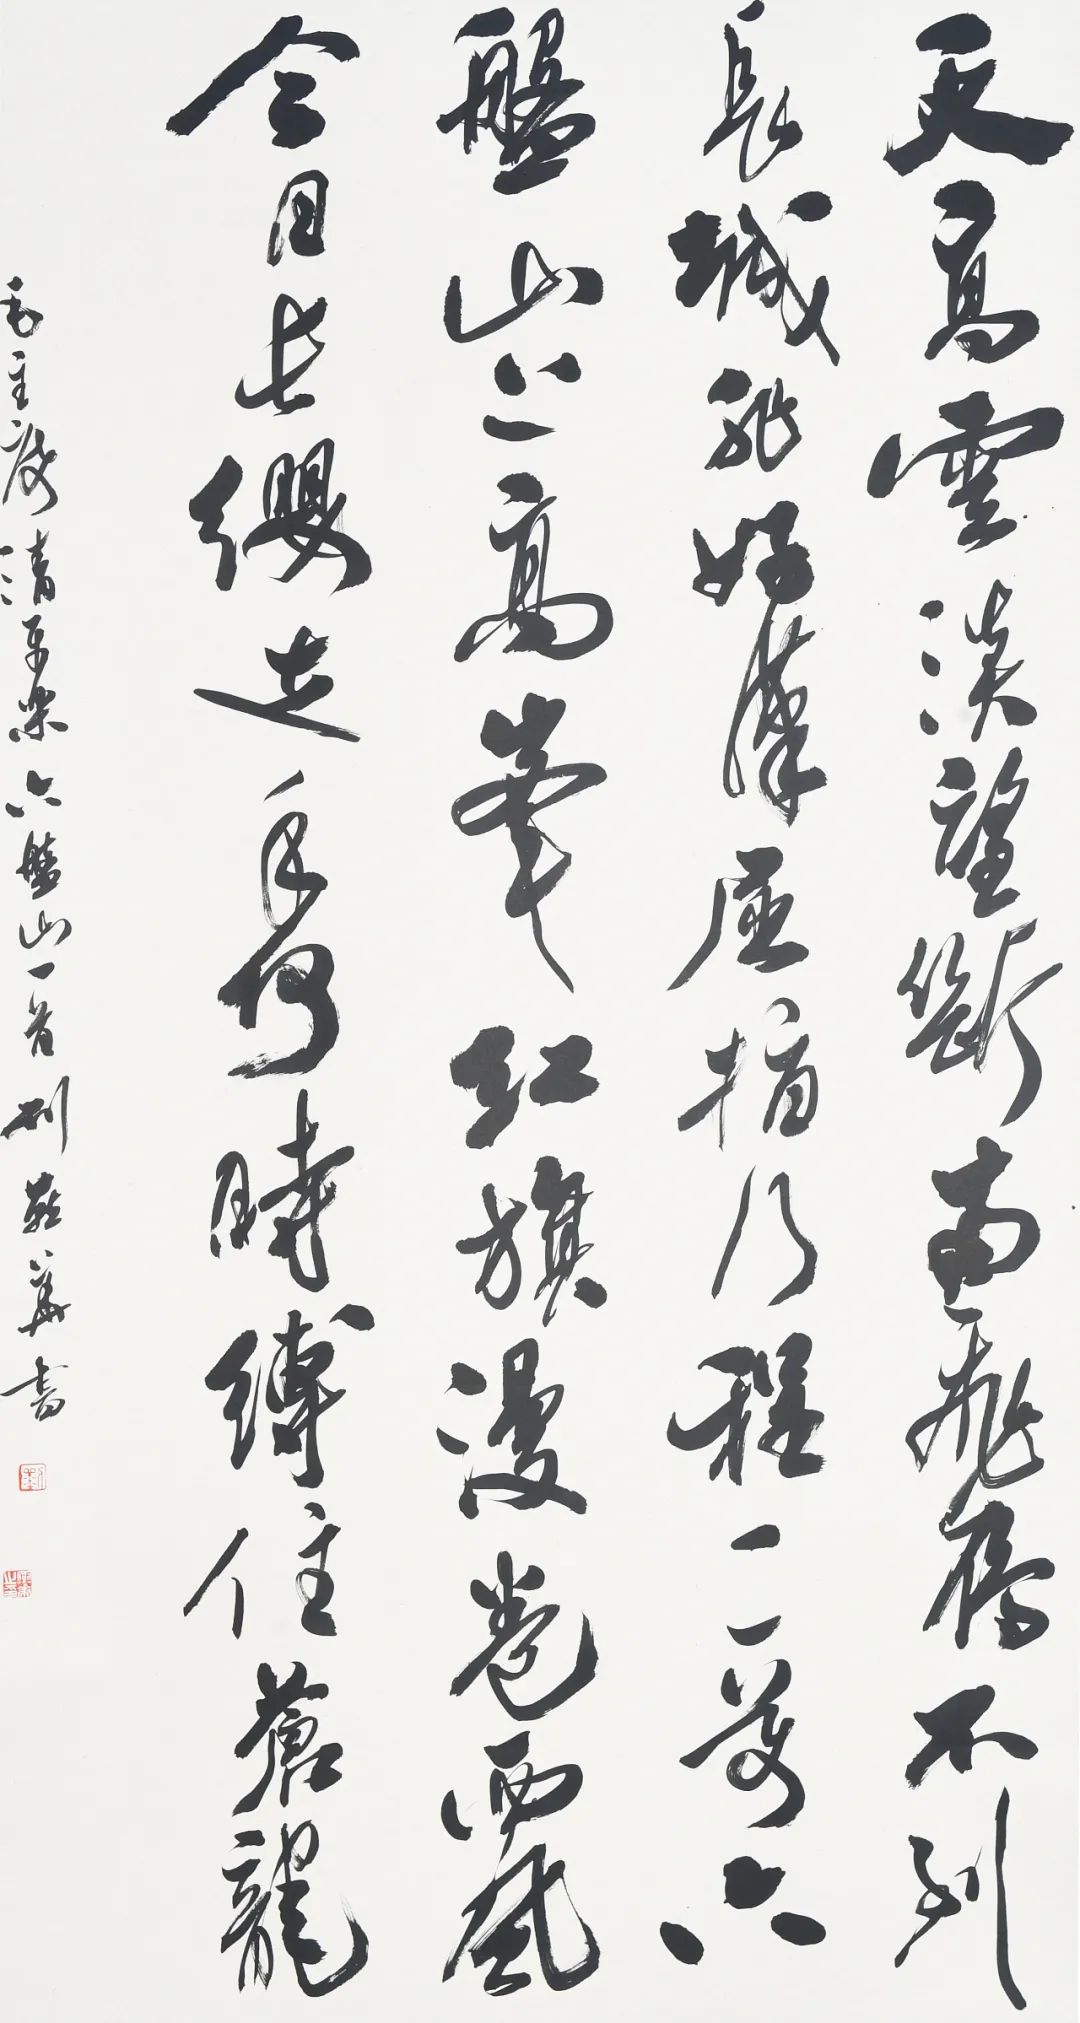 天高雲淡望斷南飛雁不到
長城非好漢屈指行程二萬六
盤山上高峯紅旗漫卷西風
今日長纓在手何時縛住蒼龍
毛主席清平樂六盤山一首刘華書